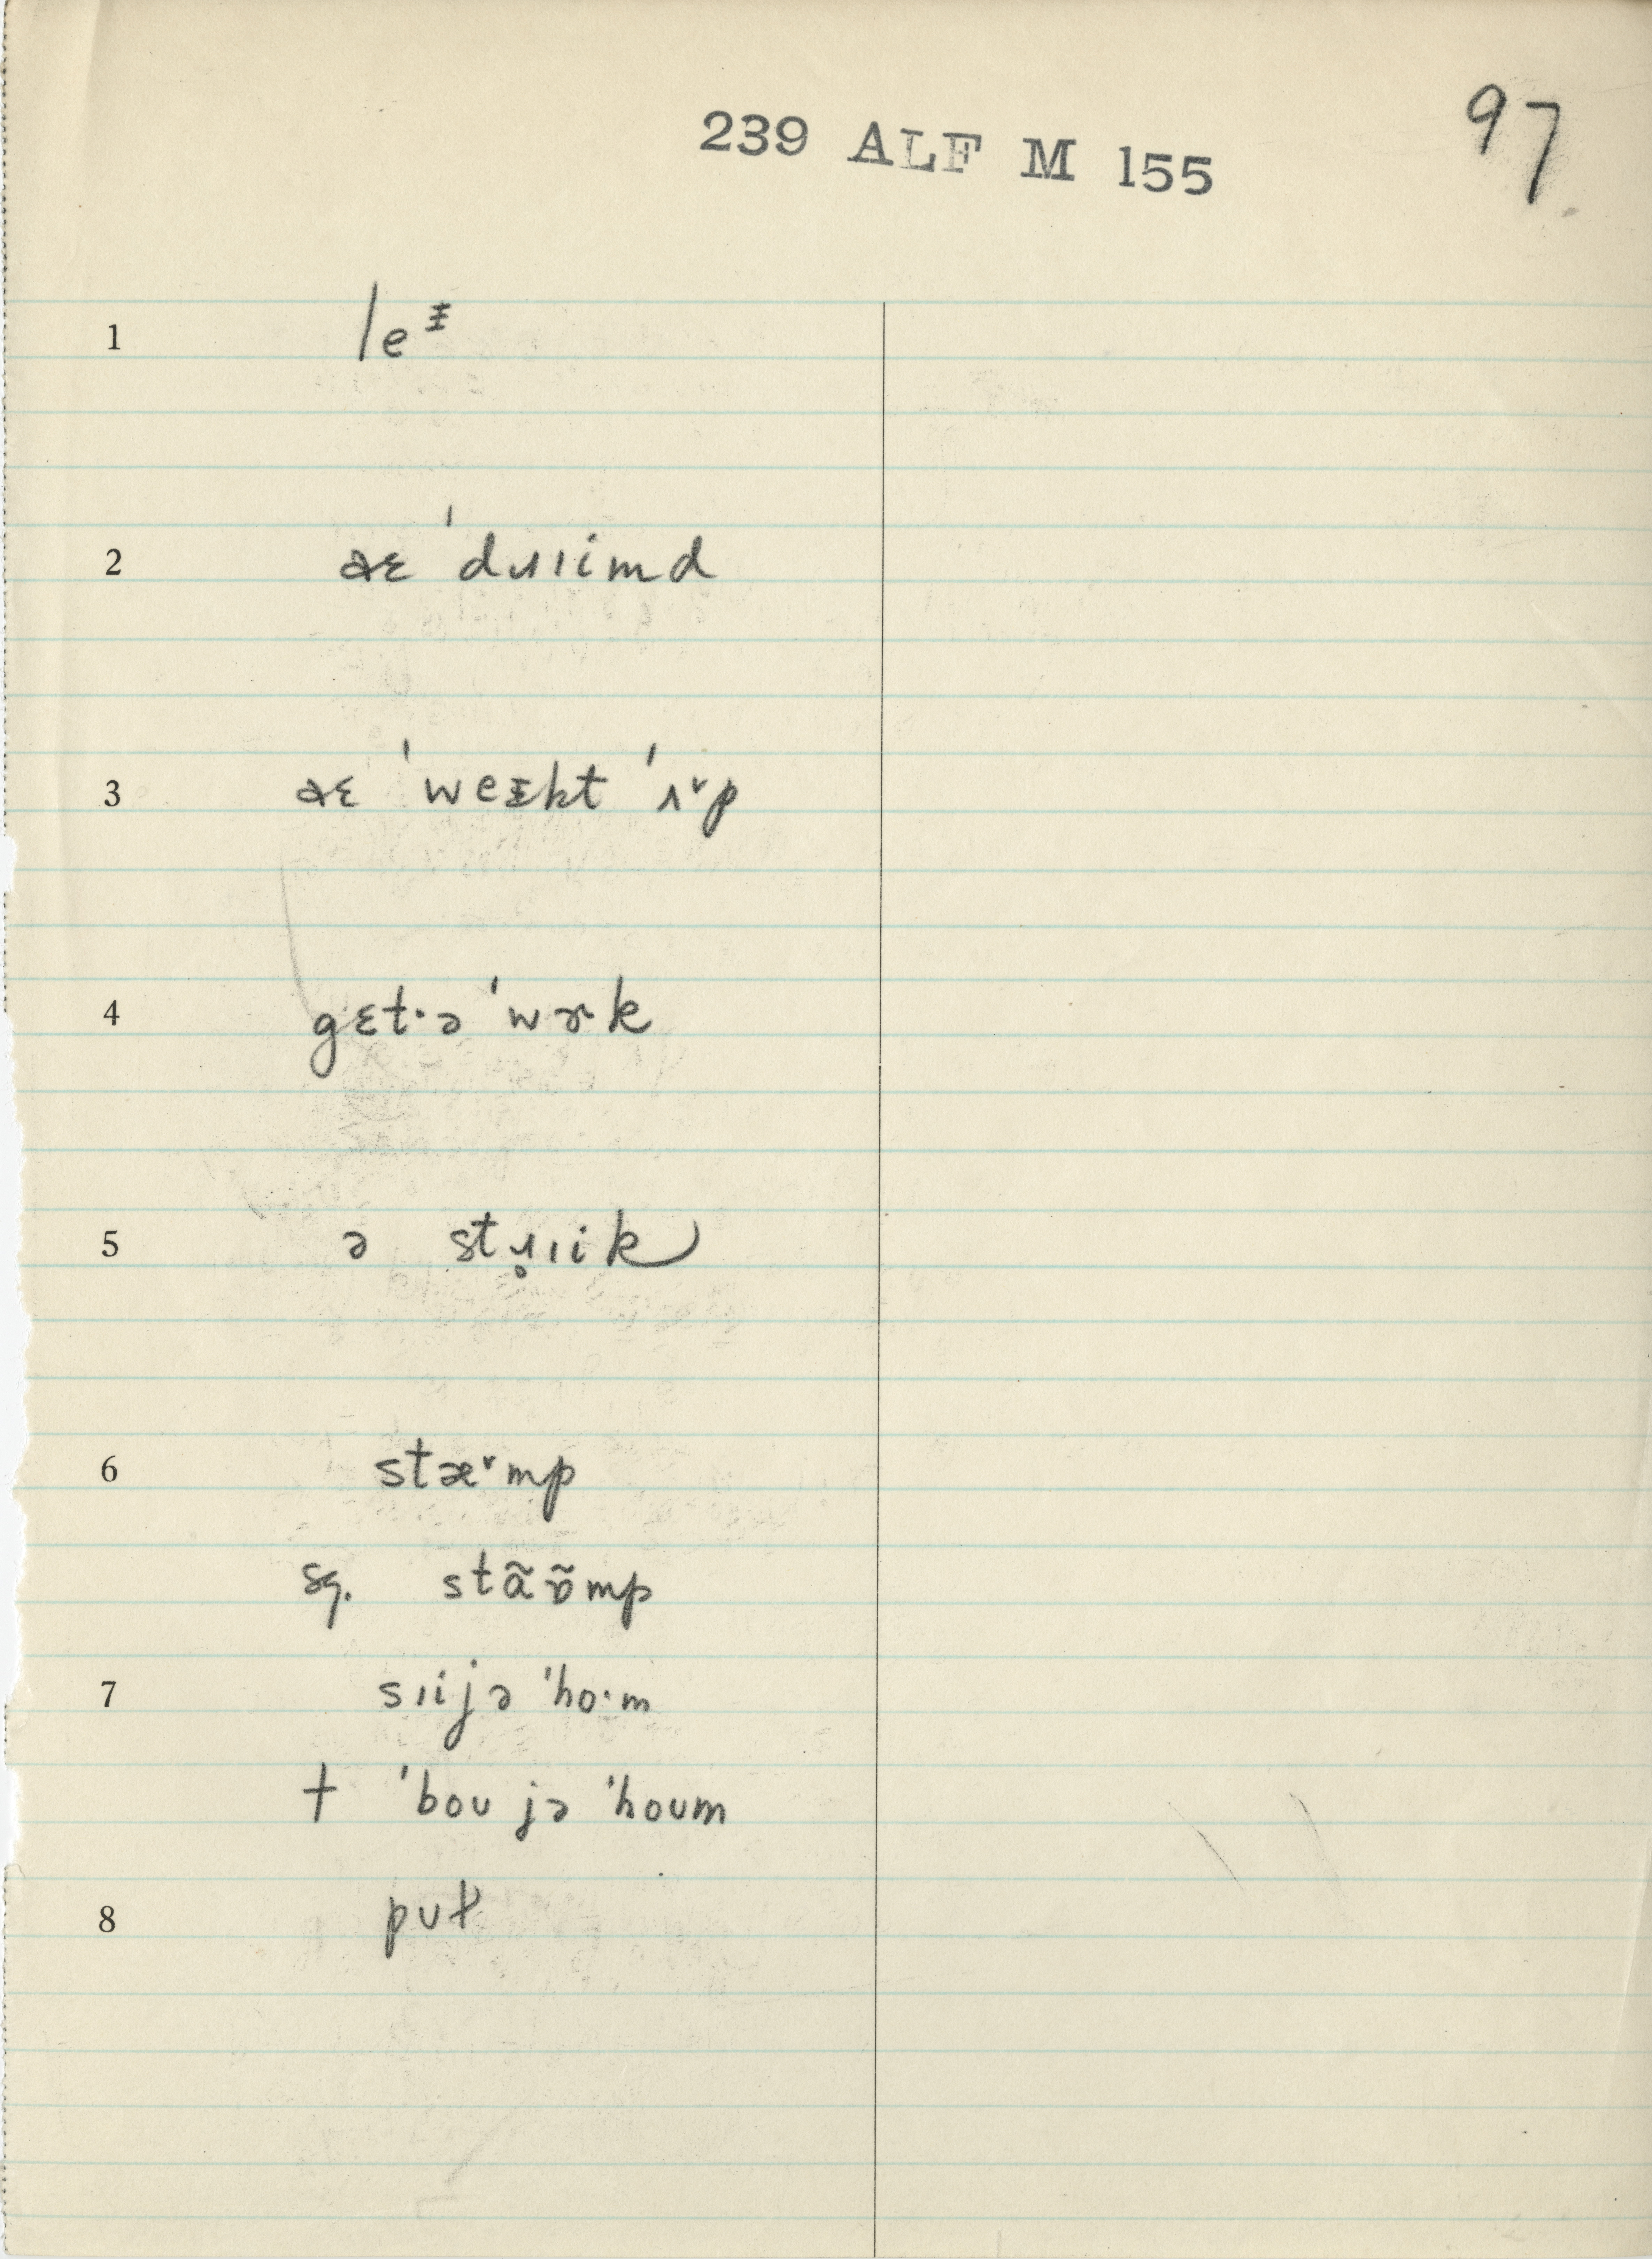 239 ALF M 155
97
1 leᵻ
2 aɛ ˈdɹɪimd
3 aɛ ˈweᵻkt ˈʌ˅p
4 gɛt·ə ˈwɚk
5 ə stɹ̥ɪik
6 stæ˅mp
sg. stãɒ̃mp
7 sɪijə ˈho·m
† ˈboʊ jə ˈhoʊm
8 pʊɫ